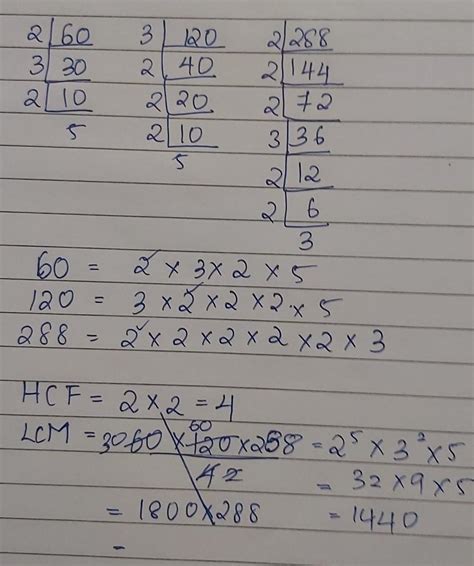 2 | 60    3 | 120    2 | 288
3 | 30    2 | 40    2 | 144
2 | 10    2 | 20    2 | 72
5    2 | 10    3 | 36
5    2 | 12
2 | 6
3
60 = 2 × 3 × 2 × 5
120 = 3 × 2 × 2 × 2 × 5
288 = 2 × 2 × 2 × 2 × 2 × 3
HCF = 2 × 2 = 4
60
LCM = 30 60 × 120 × 288 = 2⁵ × 3² × 5
= 32 × 9 × 5
= 1800 × 288 = 1440
=